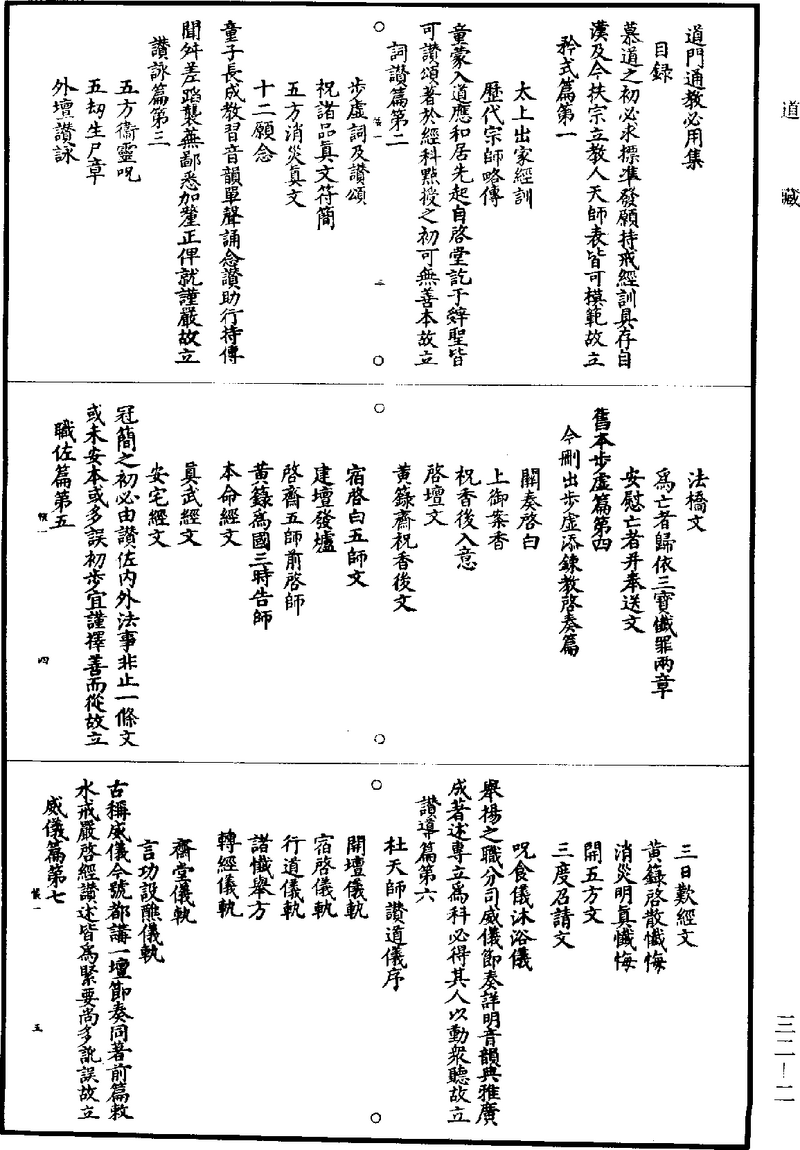 道藏
道門通教必用集
目録
慕道之初必求標準發願持戒經訓具存自
漢及今扶宗立教人天師表皆可模範故立
矜式篇第一
太上出家經訓
歷代宗師略傳
童蒙入道應和居先起自啓堂訖于辭聖皆
可讚頌著於經科點授之初可無善本故立
詞讚篇第二
步虛詞及讚頌
祝諸品眞文符簡
五方消災眞文
十二願念
童子長成教習音韻單聲誦念讚助行持傳
聞舛差蹈襲蕪鄙悉加釐正俾就謹嚴故立
讚詠篇第三
五方衞靈呪
五劫生尸章
外壇讚詠
法橋文
爲亡者歸依三寶懺罪兩章
安慰亡者并奉送文
舊本步虛篇第四
今刪出步虛添鍊教啓奏篇
關奏啓白
上御案香
祝香後入意
啓壇文
黃籙齋祝香後文
宿啓白五師文
建壇發爐
啓齋五師前啓師
黃籙爲國三時告師
本命經文
眞武經文
安宅經文
冠簡之初必由讚佐内外法事非止一條文
或未安本或多誤初步宜謹擇善而從故立
職佐篇第五
三日歎經文
黃籙啓散懺悔
消災明眞懺悔
開五方文
三度召請文
呪食儀沐浴儀
舉揚之職分司威儀節奏詳明音韻典雅廣
成著述專立爲科必得其人以動衆聽故立
讚導篇第六
杜天師讚道儀序
開壇儀軌
宿啓儀軌
行道儀軌
諸懺舉方
轉經儀軌
齋堂儀軌
言功設醮儀軌
古稱威儀今號都講一壇節奏同著前篇敕
水戒嚴啓經讚述皆爲緊要尚多訛誤故立
威儀篇第七
三
四
五
三二-二